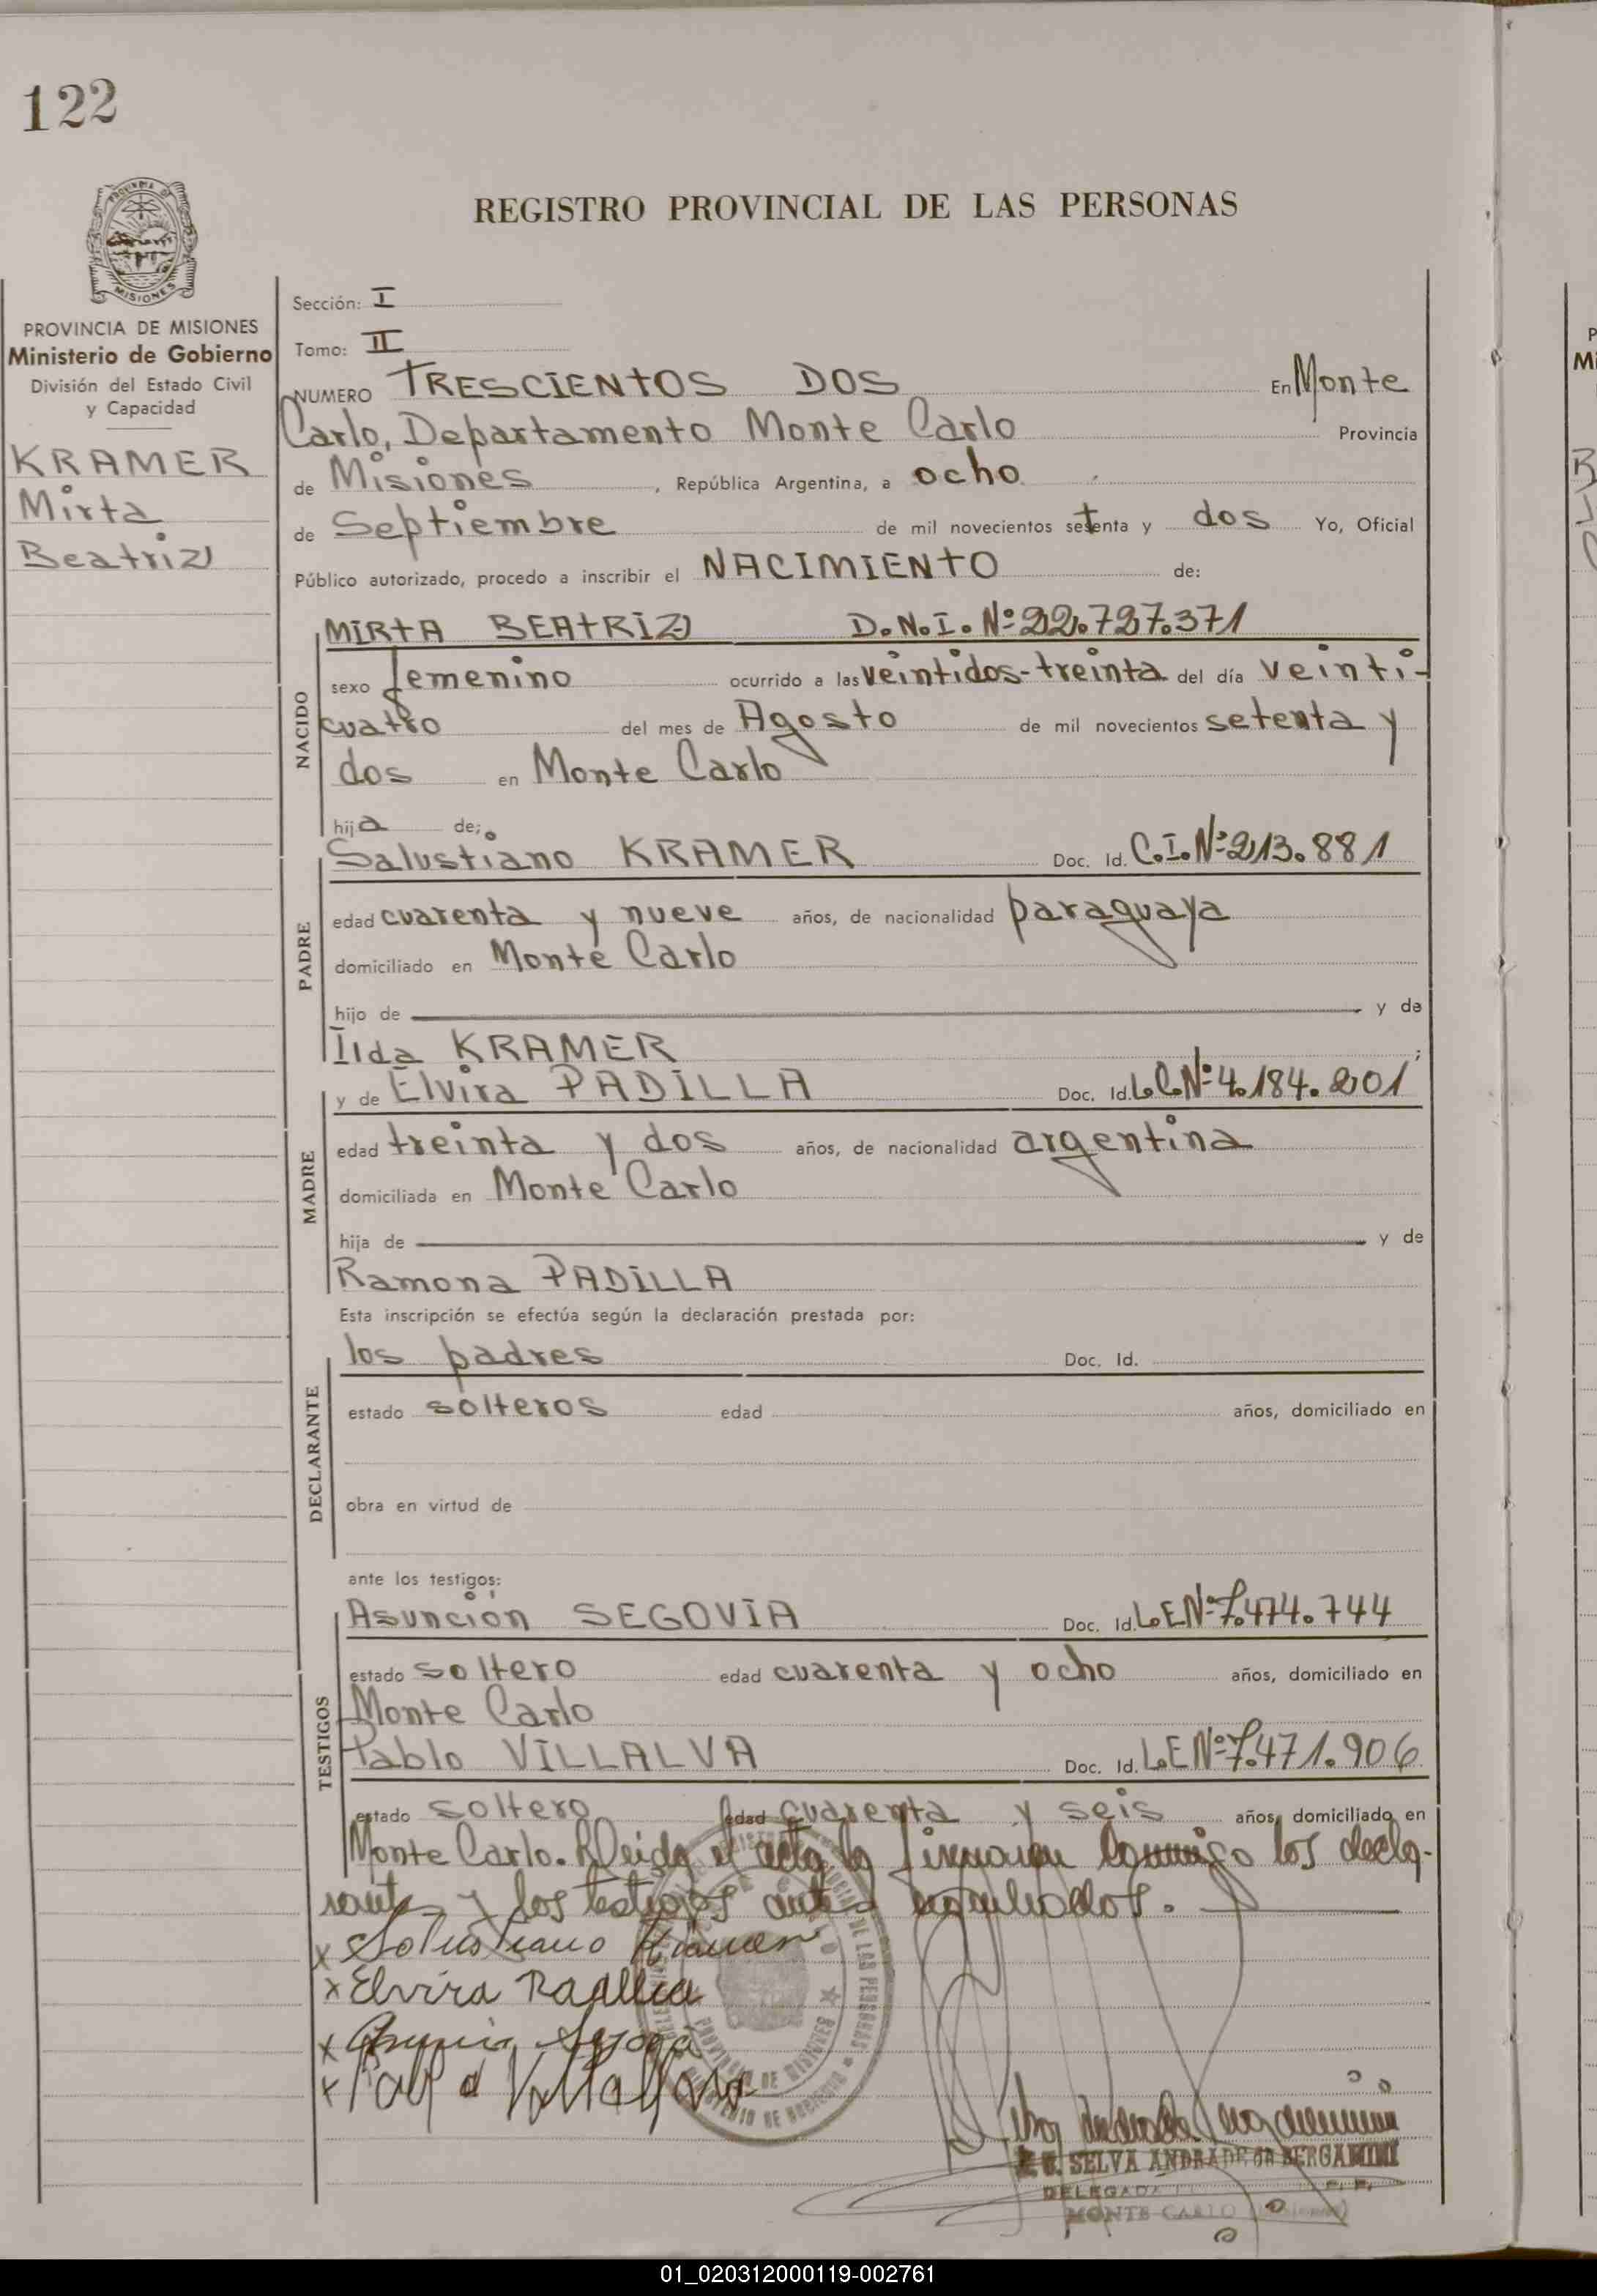 122
PROVINCIA DE
MISIONES
REGISTRO PROVINCIAL DE LAS PERSONAS
PROVINCIA DE MISIONES
Ministerio de Gobierno
División del Estado Civil
y Capacidad
KRAMER
Mirta
Beatriz
Sección: I
Tomo: II
NUMERO TRESCIENTOS DOS En Monte
Carlo, Departamento Monte Carlo Provincia
de Misiones, República Argentina, a ocho
de Septiembre de mil novecientos setenta y dos Yo, Oficial
Público autorizado, procedo a inscribir el NACIMIENTO de:
NACIDO
MIRTA BEATRIZ D.N.I. Nº 22.727.371
sexo femenino ocurrido a las veintidos-treinta del día veinti-
cuatro del mes de Agosto de mil novecientos setenta y
dos en Monte Carlo
hija de:
PADRE
Salustiano KRAMER Doc. Id. C.I. Nº 213.881
edad cuarenta y nueve años, de nacionalidad paraguaya
domiciliado en Monte Carlo
hijo de y de
Ilda KRAMER ;
MADRE
y de Elvira PADILLA Doc. Id. L.C. Nº 4.184.201
edad treinta y dos años, de nacionalidad argentina
domiciliada en Monte Carlo
hija de y de
Ramona PADILLA
Esta inscripción se efectúa según la declaración prestada por:
DECLARANTE
los padres Doc. Id.
estado solteros edad años, domiciliado en
obra en virtud de
ante los testigos:
TESTIGOS
Asunción SEGOVIA Doc. Id. L.E Nº 7.474.744
estado soltero edad cuarenta y ocho años, domiciliado en
Monte Carlo
Pablo VILLALVA Doc. Id. L.E Nº 7.471.906
estado soltero edad cuarenta y seis años, domiciliado en
Monte Carlo. Leida el acta la firmaron conmigo los decla-
rantes y los testigos antes nombrados.
x Salustiano Kramer
x Elvira Padilla
x
x
SELVA ANDRADE de BERGAMINI
DELEGADA
MONTE CARLO
01_020312000119-002761